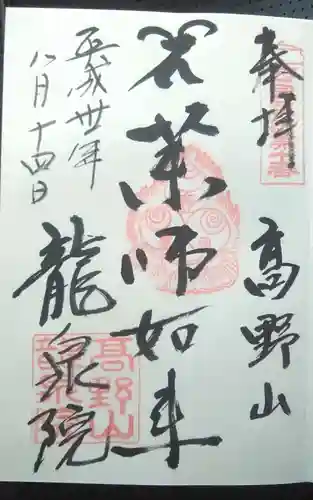 奉拝
高野山
薬師如来
平成卅年
八月十四日
龍泉院
高野山
龍泉院